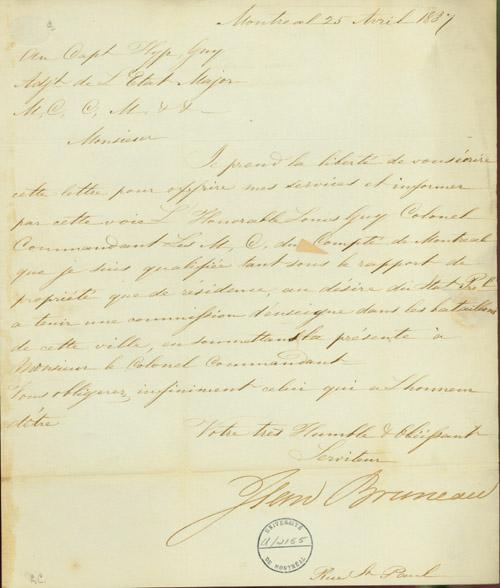 Montreal 25 Avril 1837
Au Capt Hyp, Guy
Adjt de L'Etat Major
M, C, C, M, & &
Monsieur
Je prend la liberté de vous écrire
cette lettre pour offrire mes services et informer
par cette voie L'Honorable Louis Guy Colonel
Commandant Les M, C, du Compté de Montreal
que je suis qualifiée tant sous le rapport de
propriété que de résidence, au désire du Stat
a tenir une commission d'enseigne dans les bataillons
de cette ville, en soumettant la présente à
Monsieur le Colonel Commandant
Vous obligerez infiniment celui qui a L'honneur
d'être
Votre tres Humble & Obéissant
Serviteur
Jean Bruneau
UNIVERSITÉ
DE MONTRÉAL
Rue St Paul